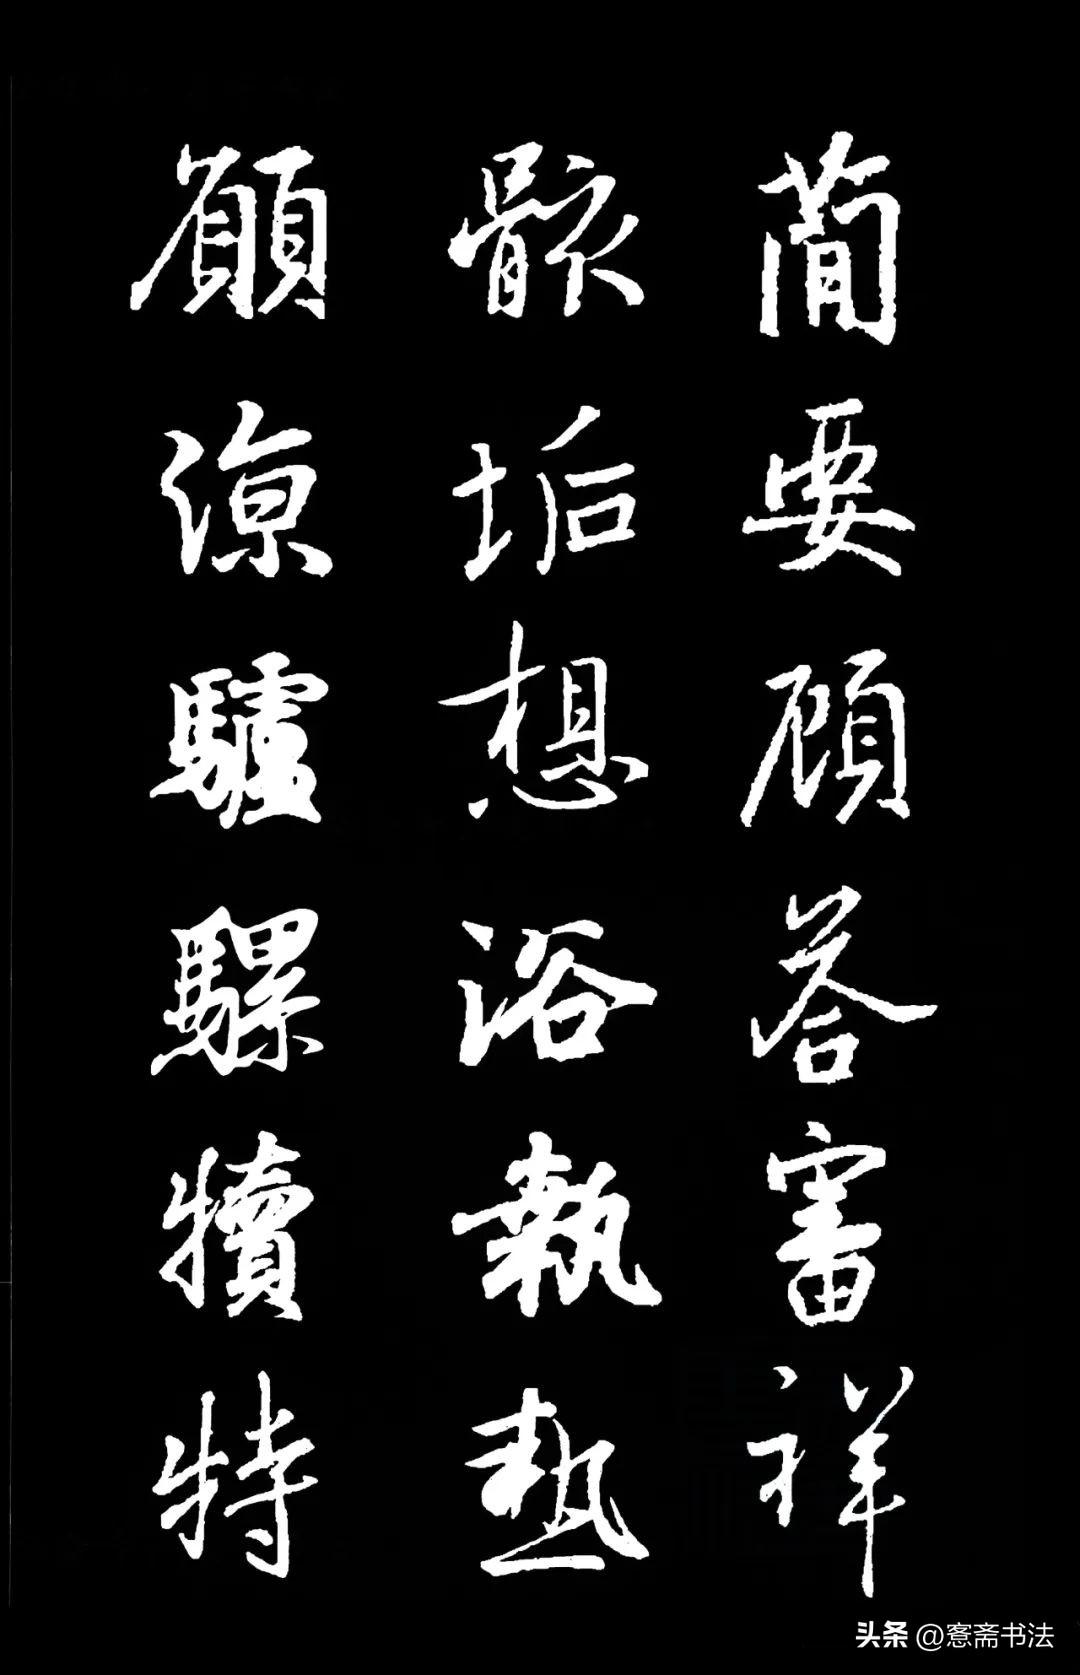 蕳要顧荅審祥
骸垢想浴執熱
願涼驢騾犢特
头条 @愙斋书法